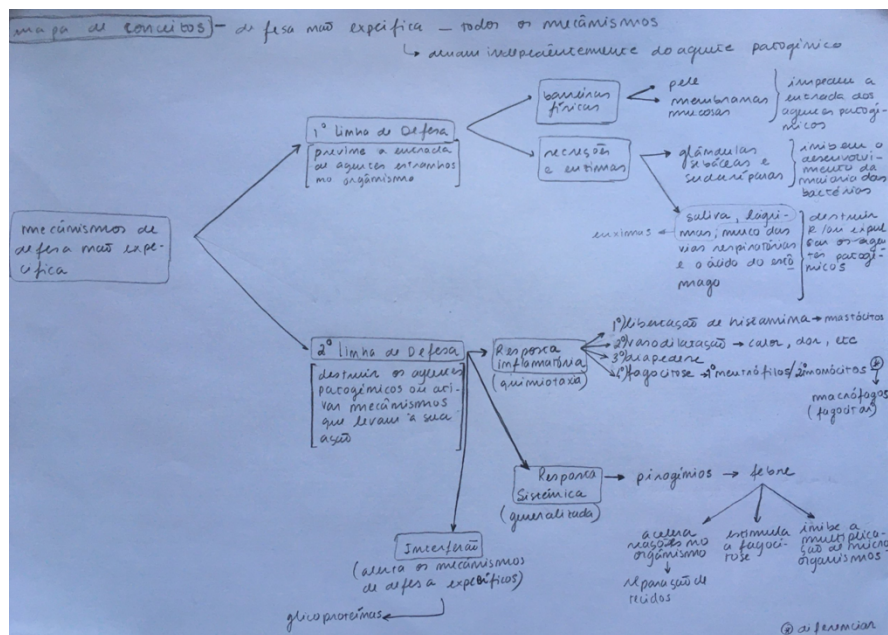 mapa de conceitos - defesa não expeifica - todos os mecânismos
atuam indepedentemente do agente patogénico
barreiras
físicas
pele
membranas
mucosas
impedem a
entrada dos
agentes patogé-
nicos
1º linha de Defesa
previne a entrada
de agentes estranhos
no orgânismo
secreções
e enzimas
glândulas
sebáceas e
sudoríparas
inibem o
desenvolvi-
mento da
maioria das
bactérias
enzimas
saliva, lágri-
mas, muco das
vias respiratórias
e o ácido do estô
mago
destruir
e/ou expul
sar os agen
tes patogé-
nicos
mecânismos de
defesa não expe-
cifica
2º linha de Defesa
destruir os agentes
patogénicos ou ati-
var mecânismos
que levam à sua
ação
Resposta
inflamatória
(quimiotaxia)
1º) libertação de histamina → mastócitos
2º) vasodilatação → calor, dor, etc
3º) diapedese
4º) fagocitose → 1º neutrófilos / 2º monócitos *
macrófagos
(fagocitar)
Resposta
Sistémica
(generalizada)
pirogénios → febre
acelera
reações no
orgânismo
reparação de
tecidos
estimula
a fagoci-
tose
inibe a
multiplica-
ção de micro
organismos
Interferão
(alerta os mecânismos
de defesa expecíficos)
glicoproteínas
* diferenciar